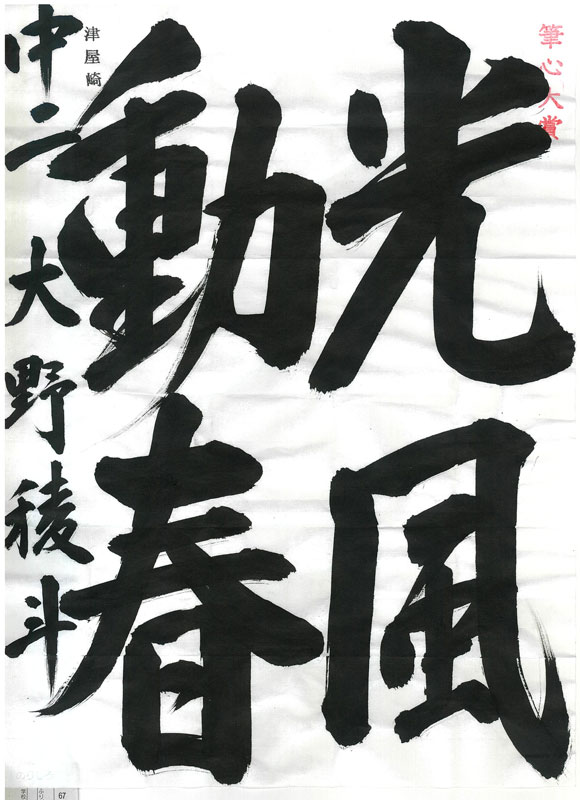 筆心大賞
光風
動春
津屋崎
中二 大野稜斗
67